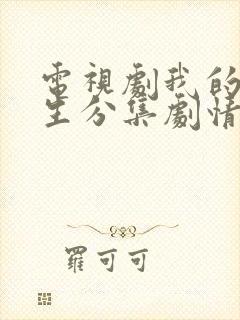 電視劇我的
生分集劇情
羅可可